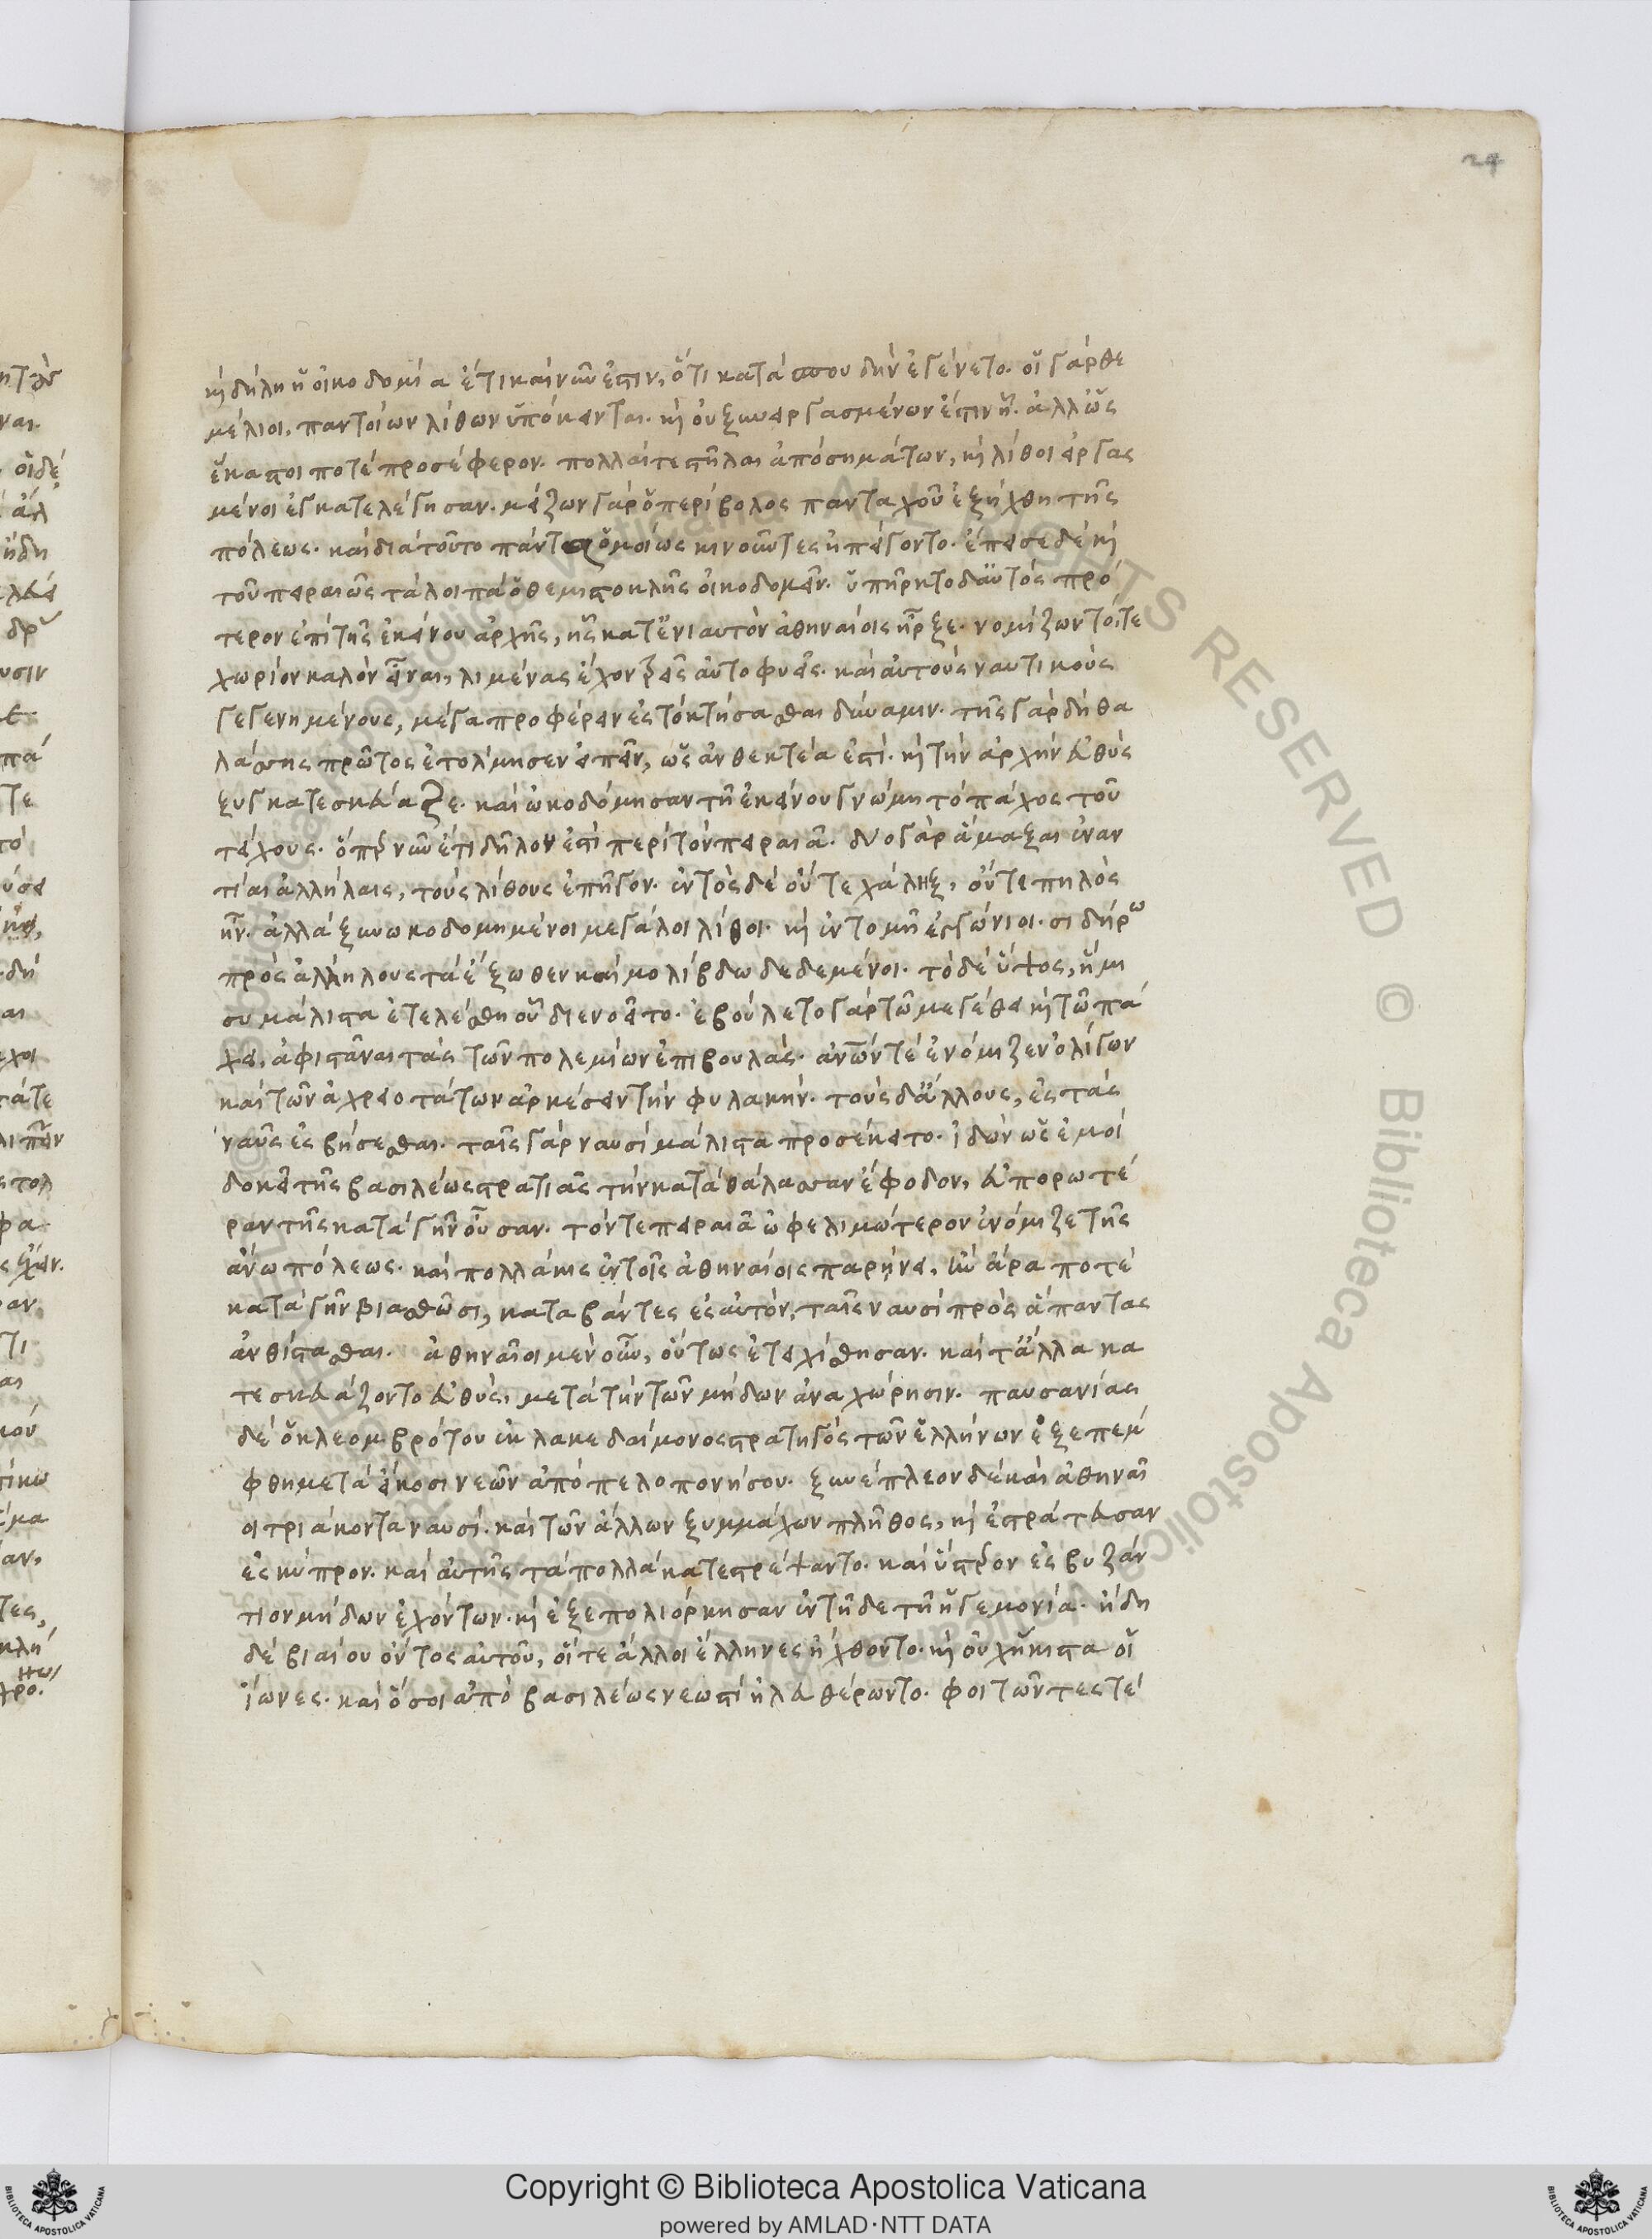 24
καὶ δήλη ἡ οἰκοδομία ἔτι καὶ νῦν ἐστιν, ὅτι κατὰ σπουδὴν ἐγένετο. οἱ γὰρ θε
μέλιοι, παντοίων λίθων ὑπόκεινται. καὶ οὐ ξυνεργασμένων ἔστιν ᾗ. ἀλλ' ὡς
ἕκαστοι ποτὲ προσέφερον. πολλαί τε στῆλαι ἀπὸ σημάτων, καὶ λίθοι εἰργας
μένοι ἐγκατελέγησαν. μείζων γὰρ ὁ περίβολος πανταχοῦ ἐξήχθη τῆς
πόλεως. καὶ διὰ τοῦτο πάντα ὁμοίως κινοῦντες ἠπείγοντο. ἔπεισε δὲ καὶ
τοῦ πειραιῶς τὰ λοιπὰ ὁ θεμιστοκλῆς οἰκοδομεῖν. ὑπῆρκτο δ' αὐτὸς πρό
τερον ἐπὶ τῆς ἐκείνου ἀρχῆς, ἧς κατ' ἐνιαυτὸν ἀθηναίοις ἦρξε. νομίζων τό, τε
χωρίον καλὸν εἶναι, λιμένας ἔχον τρεῖς αὐτοφυεῖς. καὶ αὐτοὺς ναυτικοὺς
γεγενημένους, μέγα προφέρειν ἐς τὸ κτήσασθαι δύναμιν. τῆς γὰρ δὴ θα
λάσσης πρῶτος ἐτόλμησεν εἰπεῖν, ὡς ἀνθεκτέα ἐστί. καὶ τὴν ἀρχὴν εὐθὺς
ξυγκατεσκεύαζε. καὶ ὠκοδόμησαν τῇ ἐκείνου γνώμῃ τὸ πάχος τοῦ
τείχους. ὅπερ νῦν ἔτι δῆλον ἐστὶ περὶ τὸν πειραιᾶ. δύο γὰρ ἅμαξαι ἐναν
τίαι ἀλλήλαις, τοὺς λίθους ἐπῆγον. ἐντὸς δὲ οὔτε χάληξ, οὔτε πηλὸς
ἦν. ἀλλὰ ξυνωκοδομημένοι μεγάλοι λίθοι. καὶ ἐν τομῇ ἐγγώνιοι. σιδήρω
πρὸς ἀλλήλους τὰ ἔξωθεν καὶ μολίβδω δεδεμένοι. τὸ δὲ ὕψος, ἥμι
συ μάλιστα ἐτελέσθη οὗ διενοεῖτο. ἐβούλετο γὰρ τῶ μεγέθει καὶ τῶ πά
χει, ἀφιστάναι τὰς τῶν πολεμίων ἐπιβουλάς. ἀνῶν τὲ ἐνόμιζεν ὀλίγων
καὶ τῶν ἀχρειοτάτων ἀρκέσειν τὴν φυλακήν. τοὺς δ' ἄλλους, ἐς τὰς
ναῦς ἐσβήσεσθαι. ταῖς γὰρ ναυσὶ μάλιστα προσέκειτο. ἰδὼν ὡς ἐμοὶ
δοκεῖ τῆς βασιλέως στρατιᾶς τὴν κατὰ θάλασσαν ἔφοδον, εὐπορωτέ
ραν τῆς κατὰ γῆν οὖσαν. τόν τε πειραιᾶ ὠφελιμώτερον ἐνόμιζε τῆς
ἄνω πόλεως. καὶ πολλάκις ἐν τοῖς ἀθηναίοις παρήνει, ἢν ἄρα ποτὲ
κατὰ γῆν βιασθῶσι, καταβάντες ἐς αὐτόν, ταῖς ναυσὶ πρὸς ἅπαντας
ἀνθίστασθαι. ἀθηναῖοι μὲν οὖν, οὕτως ἐτειχίσθησαν. καὶ τἄλλα κα
τεσκευάζοντο εὐθύς, μετὰ τὴν τῶν μήδων ἀναχώρησιν. παυσανίας
δὲ ὁ κλεομβρότου ἐκ λακεδαίμονος στρατηγὸς τῶν ἑλλήνων ἐξεπέμ
φθη μετὰ εἴκοσι νεῶν ἀπὸ πελοπονήσου. ξυνέπλεον δὲ καὶ ἀθηναῖ
οι τριάκοντα ναυσί. καὶ τῶν ἄλλων ξυμμάχων πλῆθος, καὶ ἐστράτευσαν
ἐς κύπρον. καὶ αὐτῆς τὰ πολλὰ κατεστρέψαντο. καὶ ὕστερον ἐς βυζάν
τιον μήδων ἐχόντων. καὶ ἐξεπολιόρκησαν ἐν τῇδε τῇ ἡγεμονίᾳ. ἤδη
δὲ βιαίου ὄντος αὐτοῦ, οἵ τε ἄλλοι ἕλληνες ἤχθοντο. καὶ οὐχ ἥκιστα οἱ
ἴωνες. καὶ ὅσοι ἀπὸ βασιλέως νεωστὶ ἠλευθέρωντο. φοιτῶντες τὲ
Copyright © Biblioteca Apostolica Vaticana
powered by AMLAD·NTT DATA